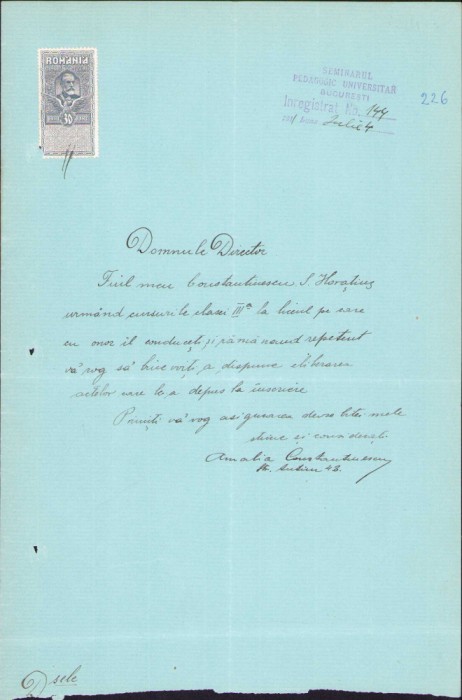 ROMANIA
30
SEMINARUL
PEDAGOGIC UNIVERSITAR
BUCUREȘTI
Inregistrat No. 144
Luna Iulie 4
226
Domnule Director
Fiul meu Constantinescu S. Horațiu
urmând cursurile clasei III a la liceul pe care
cu onor il conduceți și rămânând repetent
vă rog să bine voiți a dispune eliberarea
actelor care le a depus la înscriere
Primiți vă rog asigurarea deosebitei mele
stime și considerații
Amalia Constantinescu